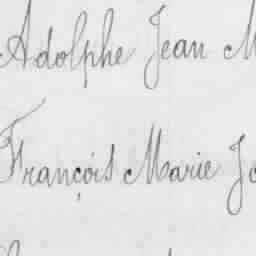 Adolphe Jean M
François Marie Jo